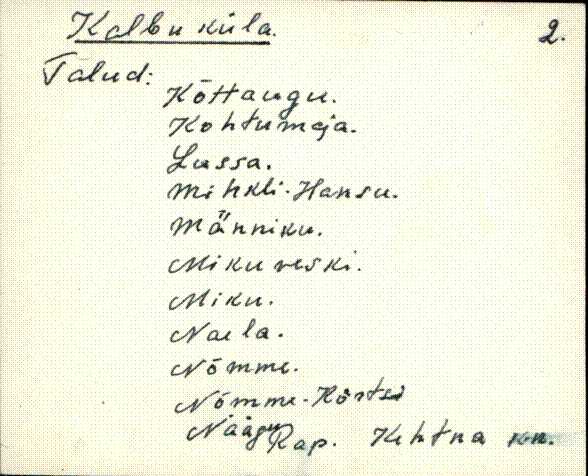 Kalbu küla. 2.
Talud:
Kõttaugu.
Kohtumaja.
Lussa.
Mihkli-Hansu.
Männiku.
Mikuveski.
Miku.
Naela.
Nõmme.
Nõmme-Kõrtsi
Näägu
Rap. Kehtna kn.